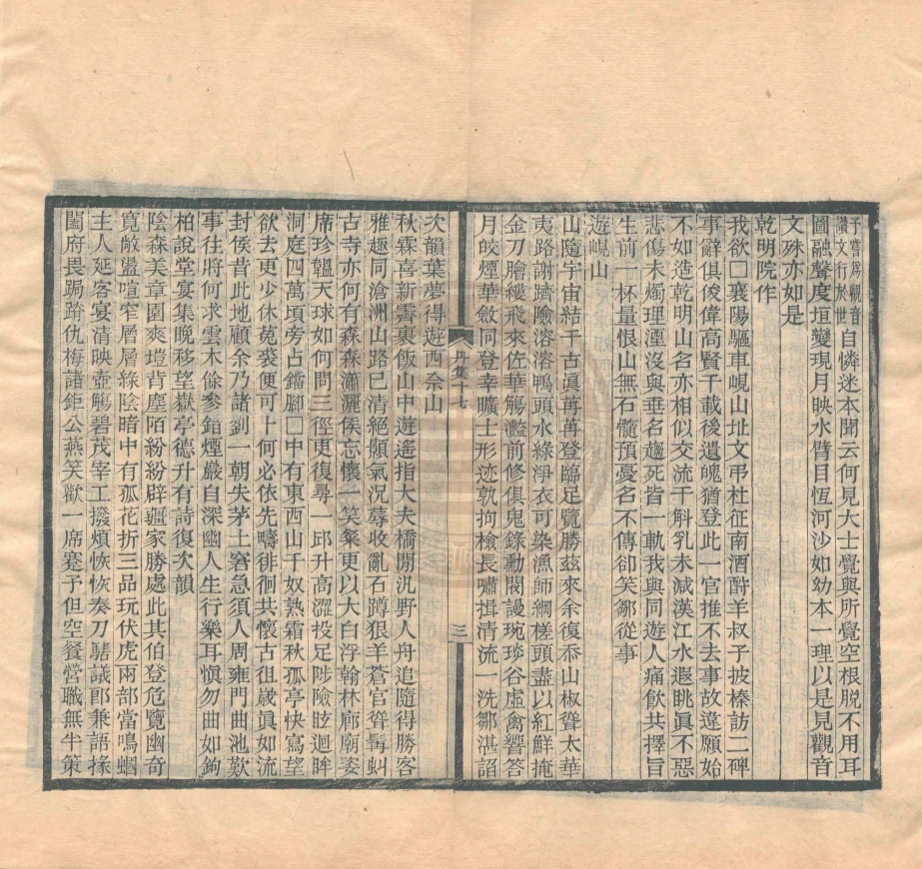 予嘗爲觀音
讚文行於世
自憐迷本聞云何見大士覺與所覺空根脫不用耳
圖融聲度垣變現月映水臂目恆河沙如幼本一理以是見觀音
文殊亦如是
乾明院作
我欲□襄陽驅車峴山址文弔杜征南酒酹羊叔子披榛訪二碑
事辭俱俊偉高賢千載後遺魄猶登此一官推不去事故違願始
不如造乾明山名亦相似交流千斛乳未減漢江水遐眺眞不惡
悲傷未燭理湮沒與垂名趨死皆一軌我與同遊人痛飲共擇旨
生前一杯量恨山無石髓預憂名不傳卻笑鄒從事
遊峴山
山隨宇宙結千古眞苒苒登臨足覽勝茲來余復忝山椒聳太華
夷路謝躋險溶溶鴨頭水綠淨衣可染漁師綱槎頭盡以紅鮮掩
金刀膾縷飛來佐華觴灩前修俱鬼錄勳閥謾琬琰谷虛禽響答
月皎煙華斂同登幸曠士形迹孰拘檢長嘯揖清流一洗鄒湛諂
丹集十七
三
次韻葉夢得遊西余山
秋霖喜新霽裹飯山中遊遙指大夫橋閒汎野人舟追隨得勝客
雅趣同滄洲山路巳清絕顥氣況蓐收亂石蹲狠羊蒼官聳髯虯
古寺亦何有森森瀟灑侯忘懷一笑粲更以大白浮翰林廊廟姿
席珍韞天球如何問三徑更復尋一邱升高澀投足陟險眩迴眸
洞庭四萬頃旁占鐺腳□中有東西山千奴熟霜秋孤亭快寫望
欲去更少休菟裘便可卜何必依先疇徘徊共懷古徂歲眞如流
封侯昔此地顧余乃諸劉一朝失茅土窘急須人周雍門曲池歎
事往將何求雲木餘參錯煙巖自深幽人生行樂耳愼勿曲如鉤
柏說堂宴集晚移望嶽亭德升有詩復次韻
陰森美章圍爽塏背塵陌紛紛辟疆家勝處此其伯登危覽幽奇
寬敞盪喧窄層層綠陰暗中有孤花折三品玩伏虎兩部當鳴蟈
主人延客宴清映壺觴碧茂宰工撥煩恢恢奏刀騞議郎兼語掾
閨府畏跼蹐仇梅諸鉅公燕笑歡一席蹇予但空餐營職無半策